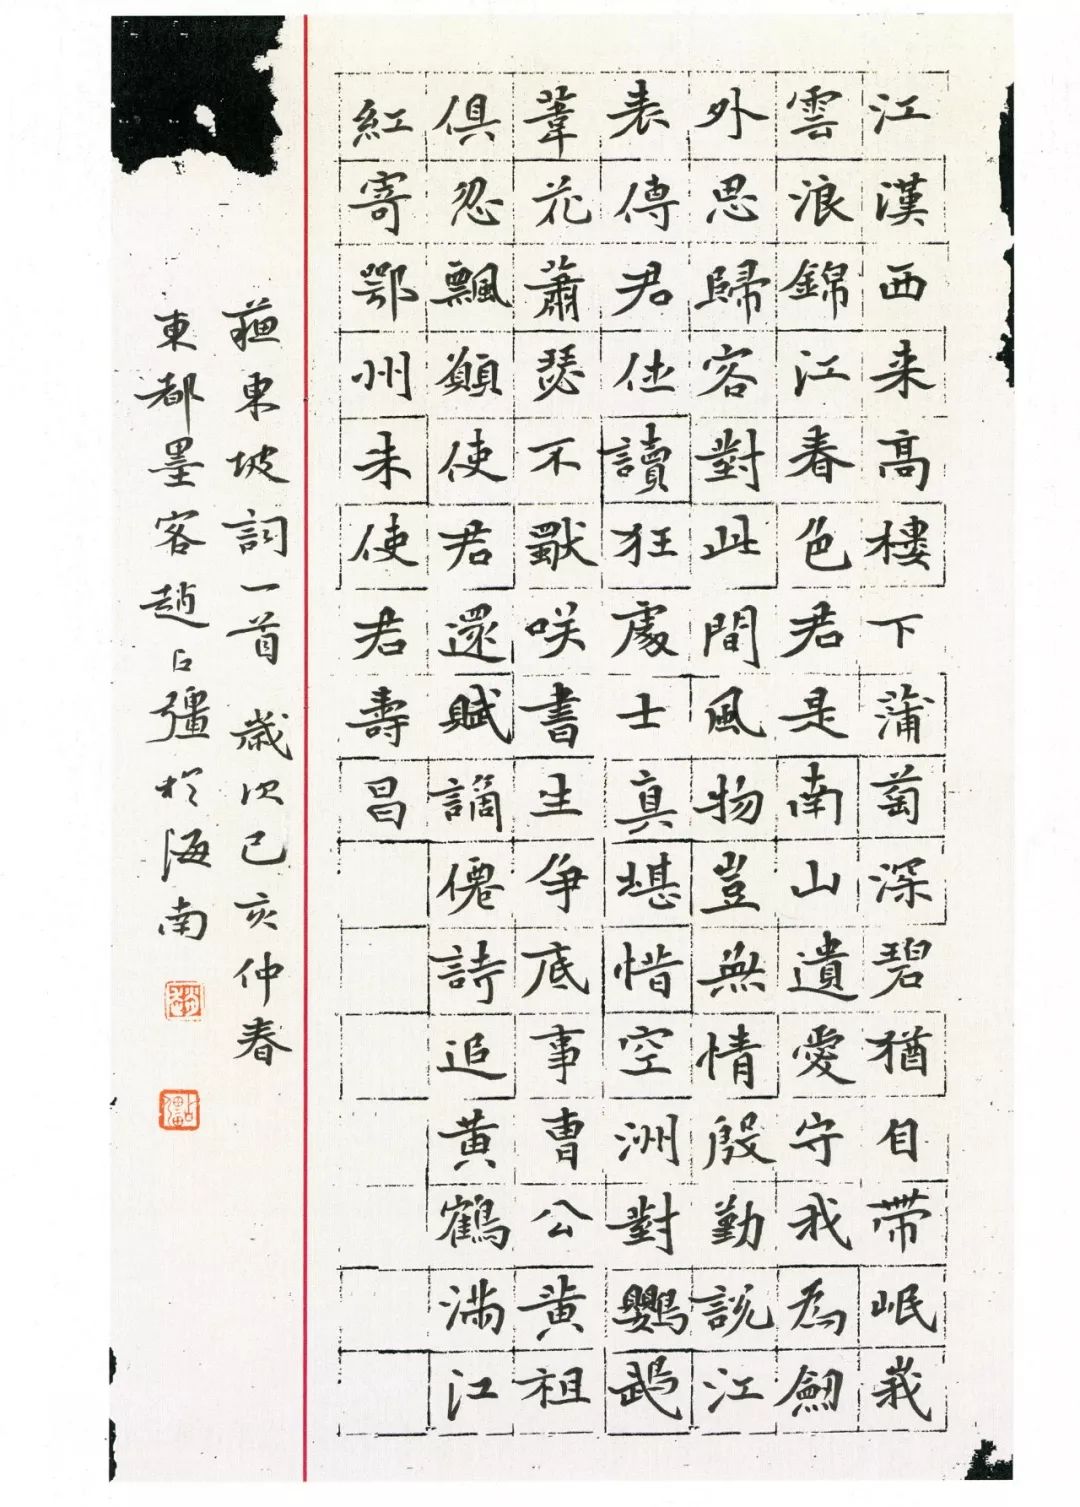 江漢西来高樓下蒲萄深碧猶自帶岷峩
雲浪錦江春色君是南山遺愛守我為劒
外思歸客對此間風物豈無情殷勤說江
表傳君休讀狂處士真堪惜空洲對鸚鵡
葦花蕭瑟不獨咲書生争底事曹公黄祖
俱忽飄願使君還賦謫僊詩追黄鶴滿江
紅寄鄂州朱使君壽昌
蘓東坡詞一首歲次己亥仲春
東都墨客趙占彊於海南
占彊